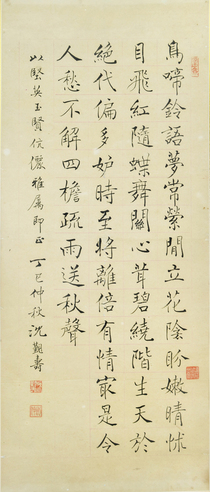 鳥啼鈴語夢常縈閒立花陰盼嫩晴怵
目飛紅隨蝶舞關心茸碧繞階生天於
絕代偏多妒時至將離倍有情冣是令
人愁不解四檐疏雨送秋聲
以堅英玉賢伉儷雅屬即正 丁巳仲秋沈覲壽